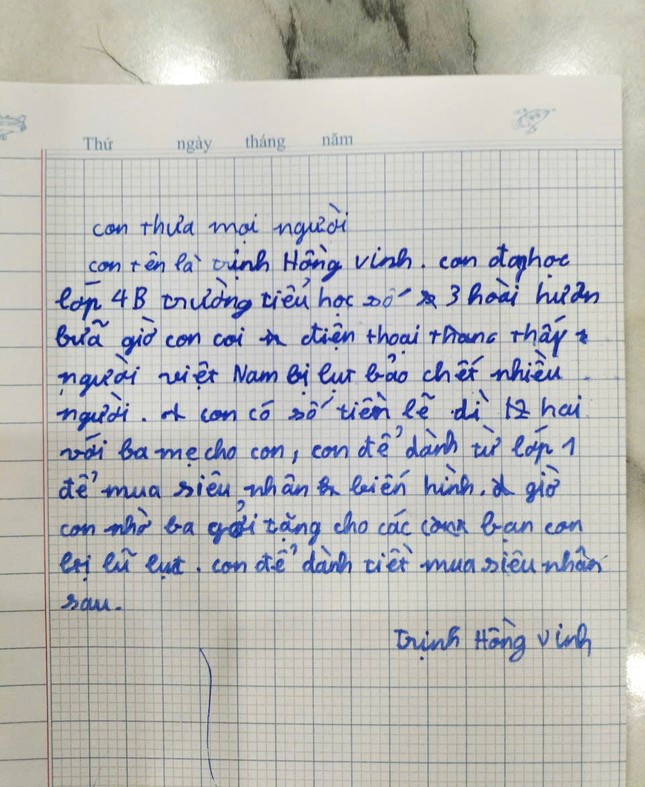 Thứ ngày tháng năm
con thưa mọi người
con tên là trịnh Hồng vinh. con đang học
lớp 4B trường tiểu học số 3 hoài hươn
bữa giờ con coi điện thoại thang thấy
người việt Nam bị lụt bão chết nhiều
người. con có số tiền lẽ dì hai
với ba mẹ cho con, con để dành từ lớp 1
để mua siêu nhân biến hình. giờ
con nhờ ba gởi tặng cho các bạn con
bị lũ lụt. con để dành tiết mua siêu nhân
sau.
Trịnh Hồng vinh